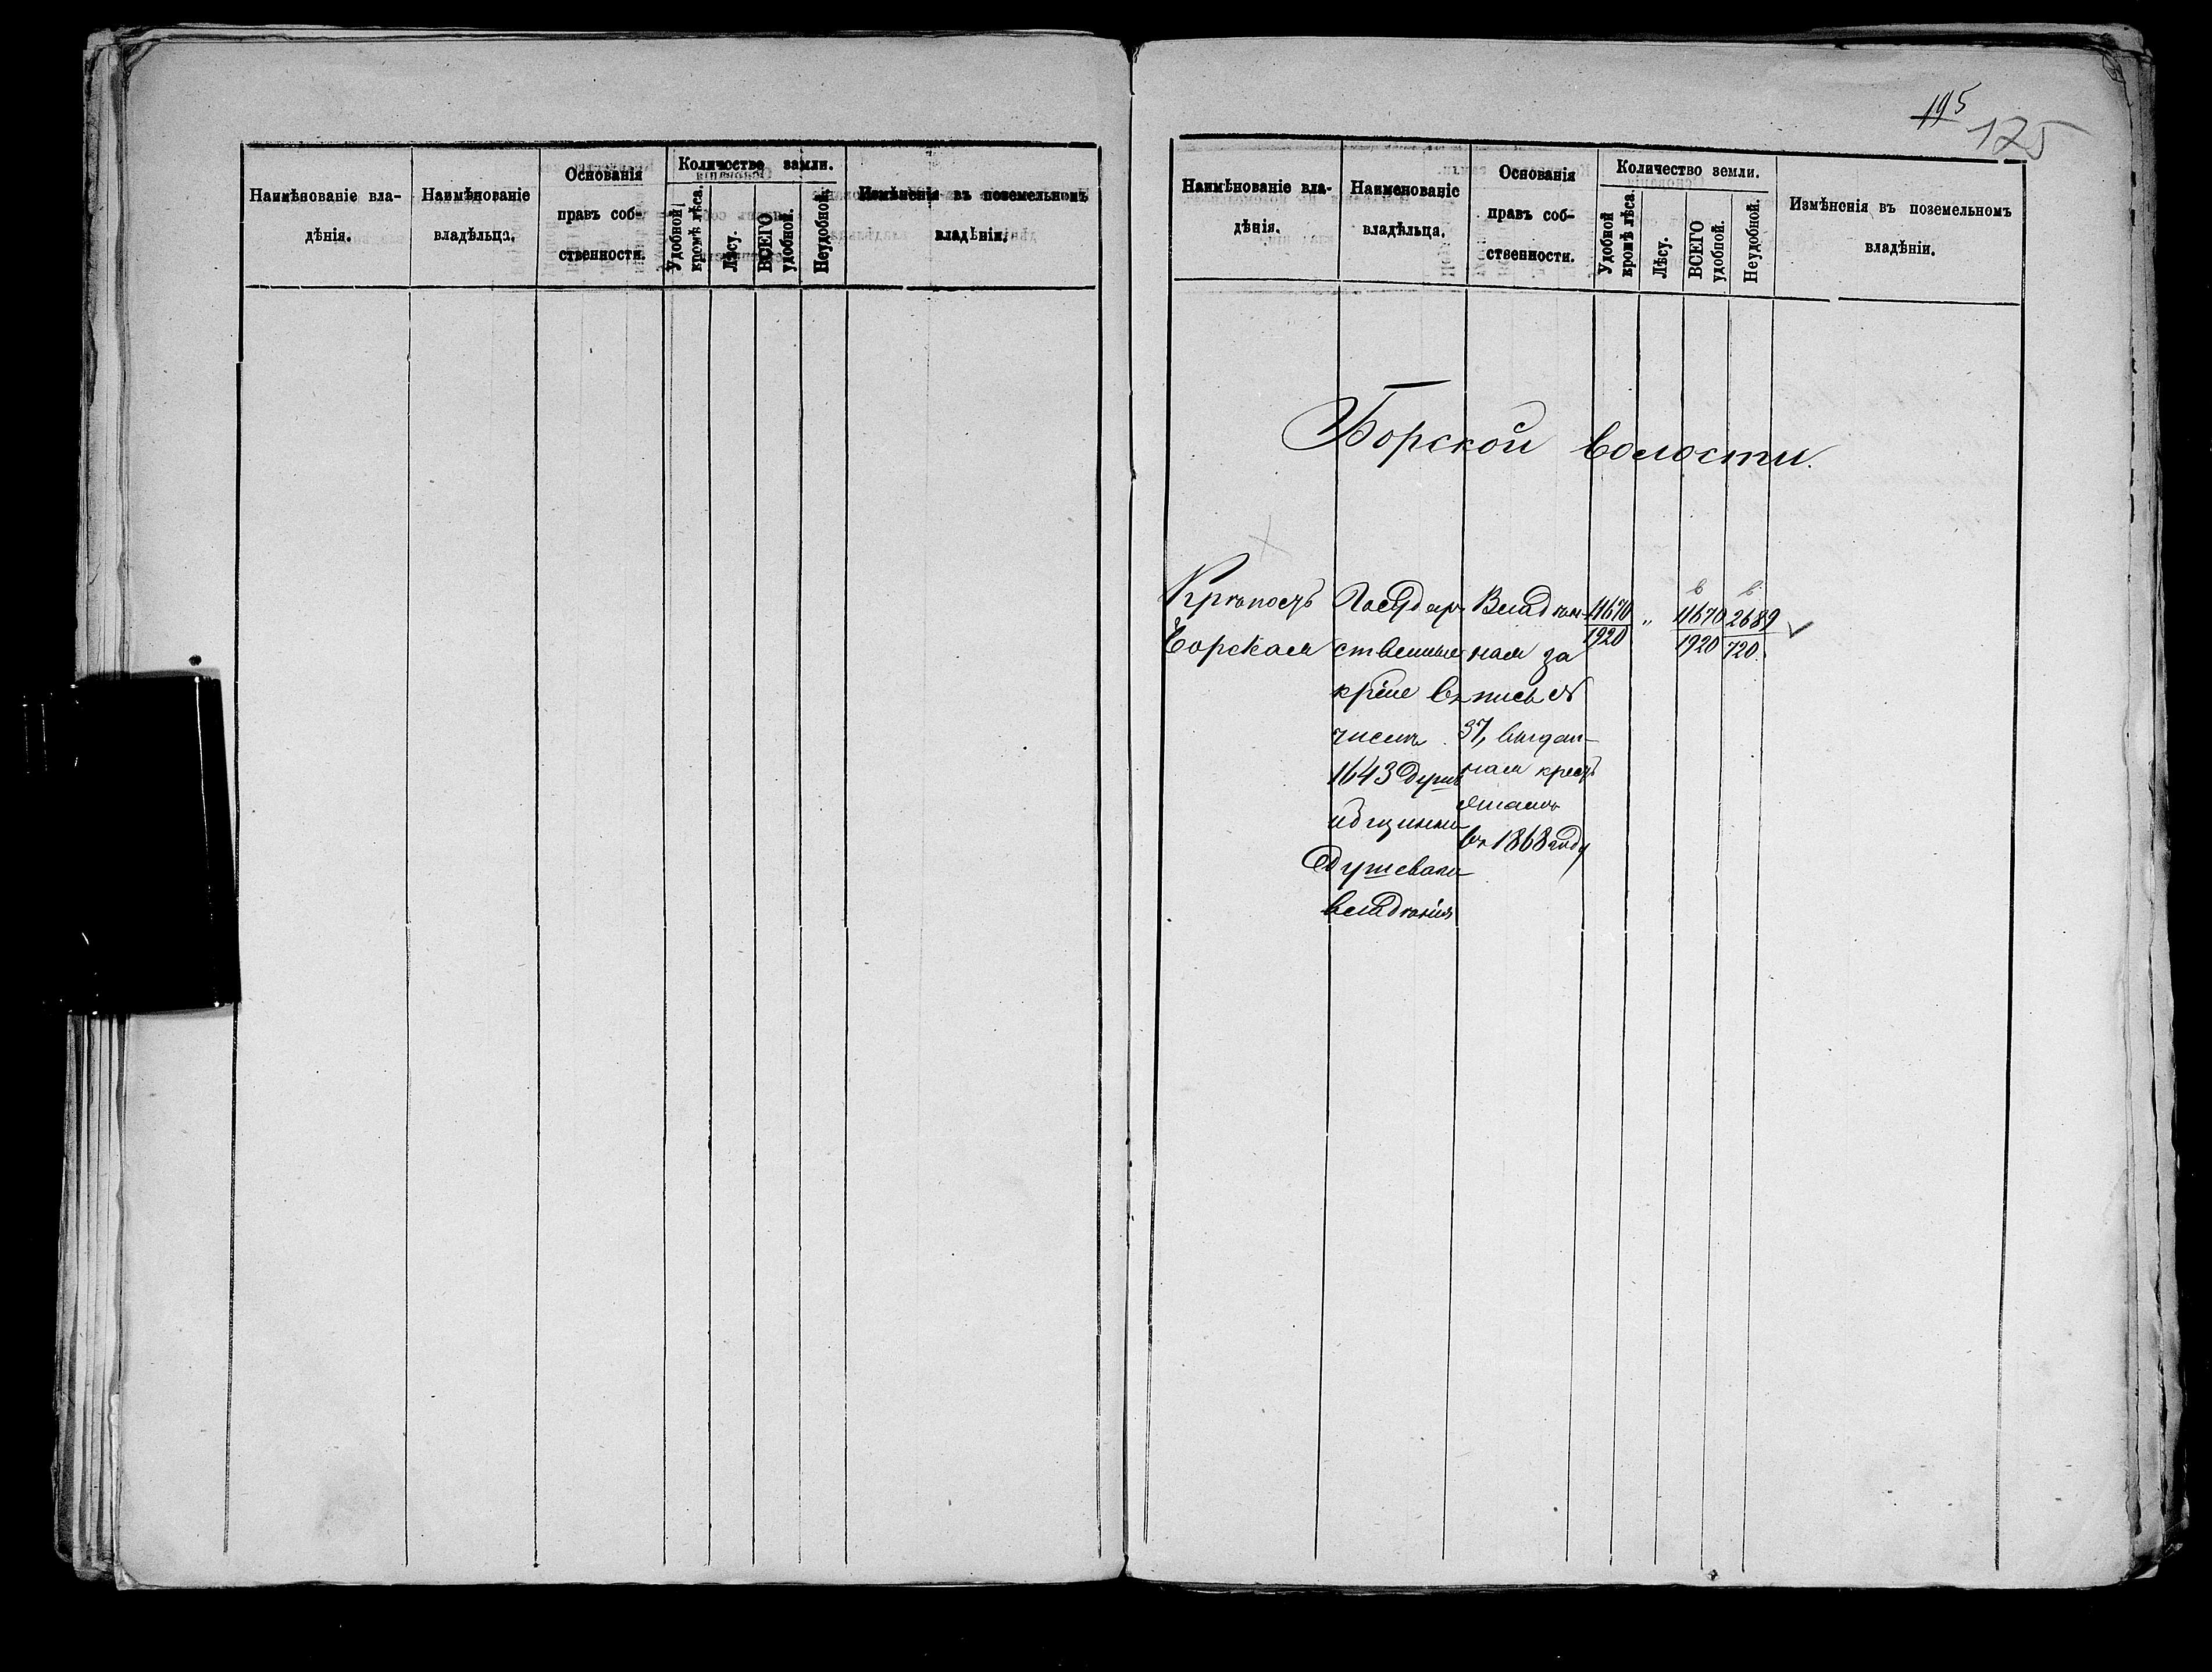 Наимѣнованіе вла-
дѣнія.
Наимѣнованіе
владѣльца.
Основанія
правъ соб-
ственности.
Количество земли.
Удобной
кромѣ лѣса.
Лѣсу.
ВСЕГО
удобной.
Неудобной.
Измѣненія въ поземельномъ
владѣніи.
115
125
Наимѣнованіе вла-
дѣнія.
Наименованіе
владѣльца.
Основанія
правъ соб-
ственности.
Количество земли.
Удобной
кромѣ лѣса.
Лѣсу.
ВСЕГО
удобной.
Неудобной.
Измѣненія въ поземельномъ
владѣніи.
Борской волости.
Крѣпость
Борская
Государ
ственные
кр҃не въ
числѣ
1643 душъ
общинно
душеваго
владѣнія
Владѣн-
ная за
пись №
37, выдан-
ная крест
янамъ
въ 1868 году
11670
1920
"
11670
1920
2689
720.